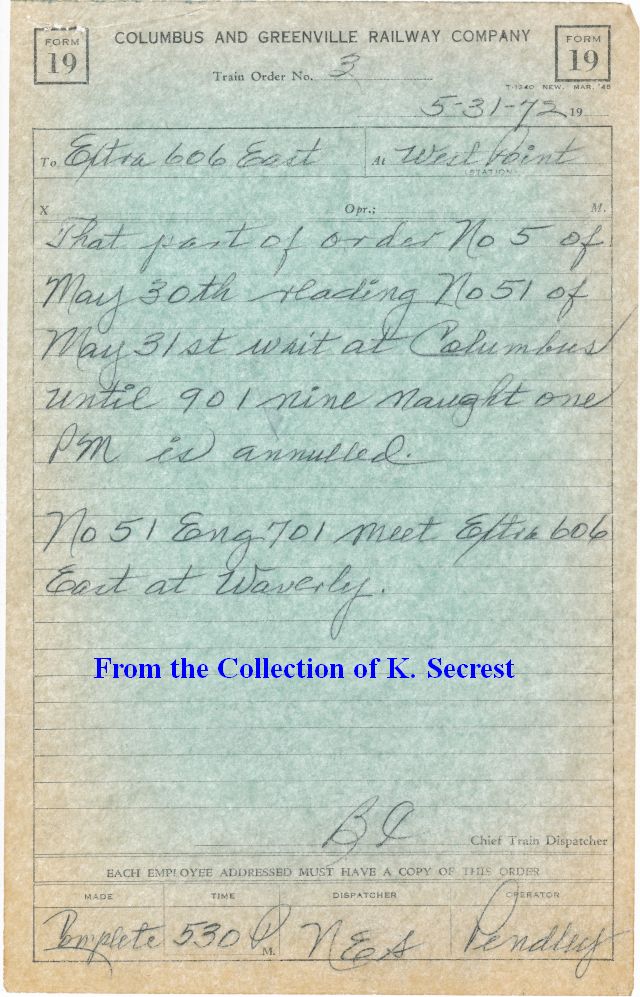 FORM 19
COLUMBUS AND GREENVILLE RAILWAY COMPANY
FORM 19
Train Order No. 3
T-1240 NEW. MAR. '48
5-31-72 19
To Extra 606 East At West Point
(STATION)
X Opr.; M.
That part of order No 5 of
May 30th reading No 51 of
May 31st wait at Columbus
until 901 nine naught one
PM is annulled.
No 51 Eng 701 meet Extra 606
East at Waverly.
From the Collection of K. Secrest
Chief Train Dispatcher
EACH EMPLOYEE ADDRESSED MUST HAVE A COPY OF THIS ORDER
MADE TIME DISPATCHER OPERATOR
Complete 530 P M. NES Pendley